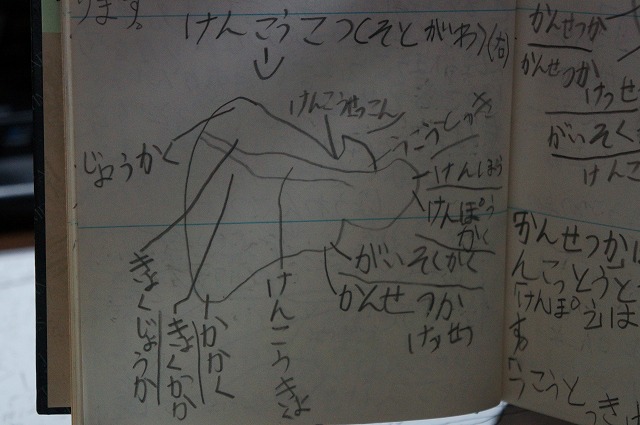 ります。
けんこうこつ(そとがわ)(右)
けんこうせっこん
うこうとっき
じょうかく
けんぽう
けんぽう
かく
がいそくかく
かんせつか
けっせつ
けんこうきょ
かかく
きょくかか
きょくじょうか
かんせつか
かんせつか
けっせ
がいそく
けんこ
かんせつかは
んこっとうと
「けんぽうは
す。
うこうと
っきは